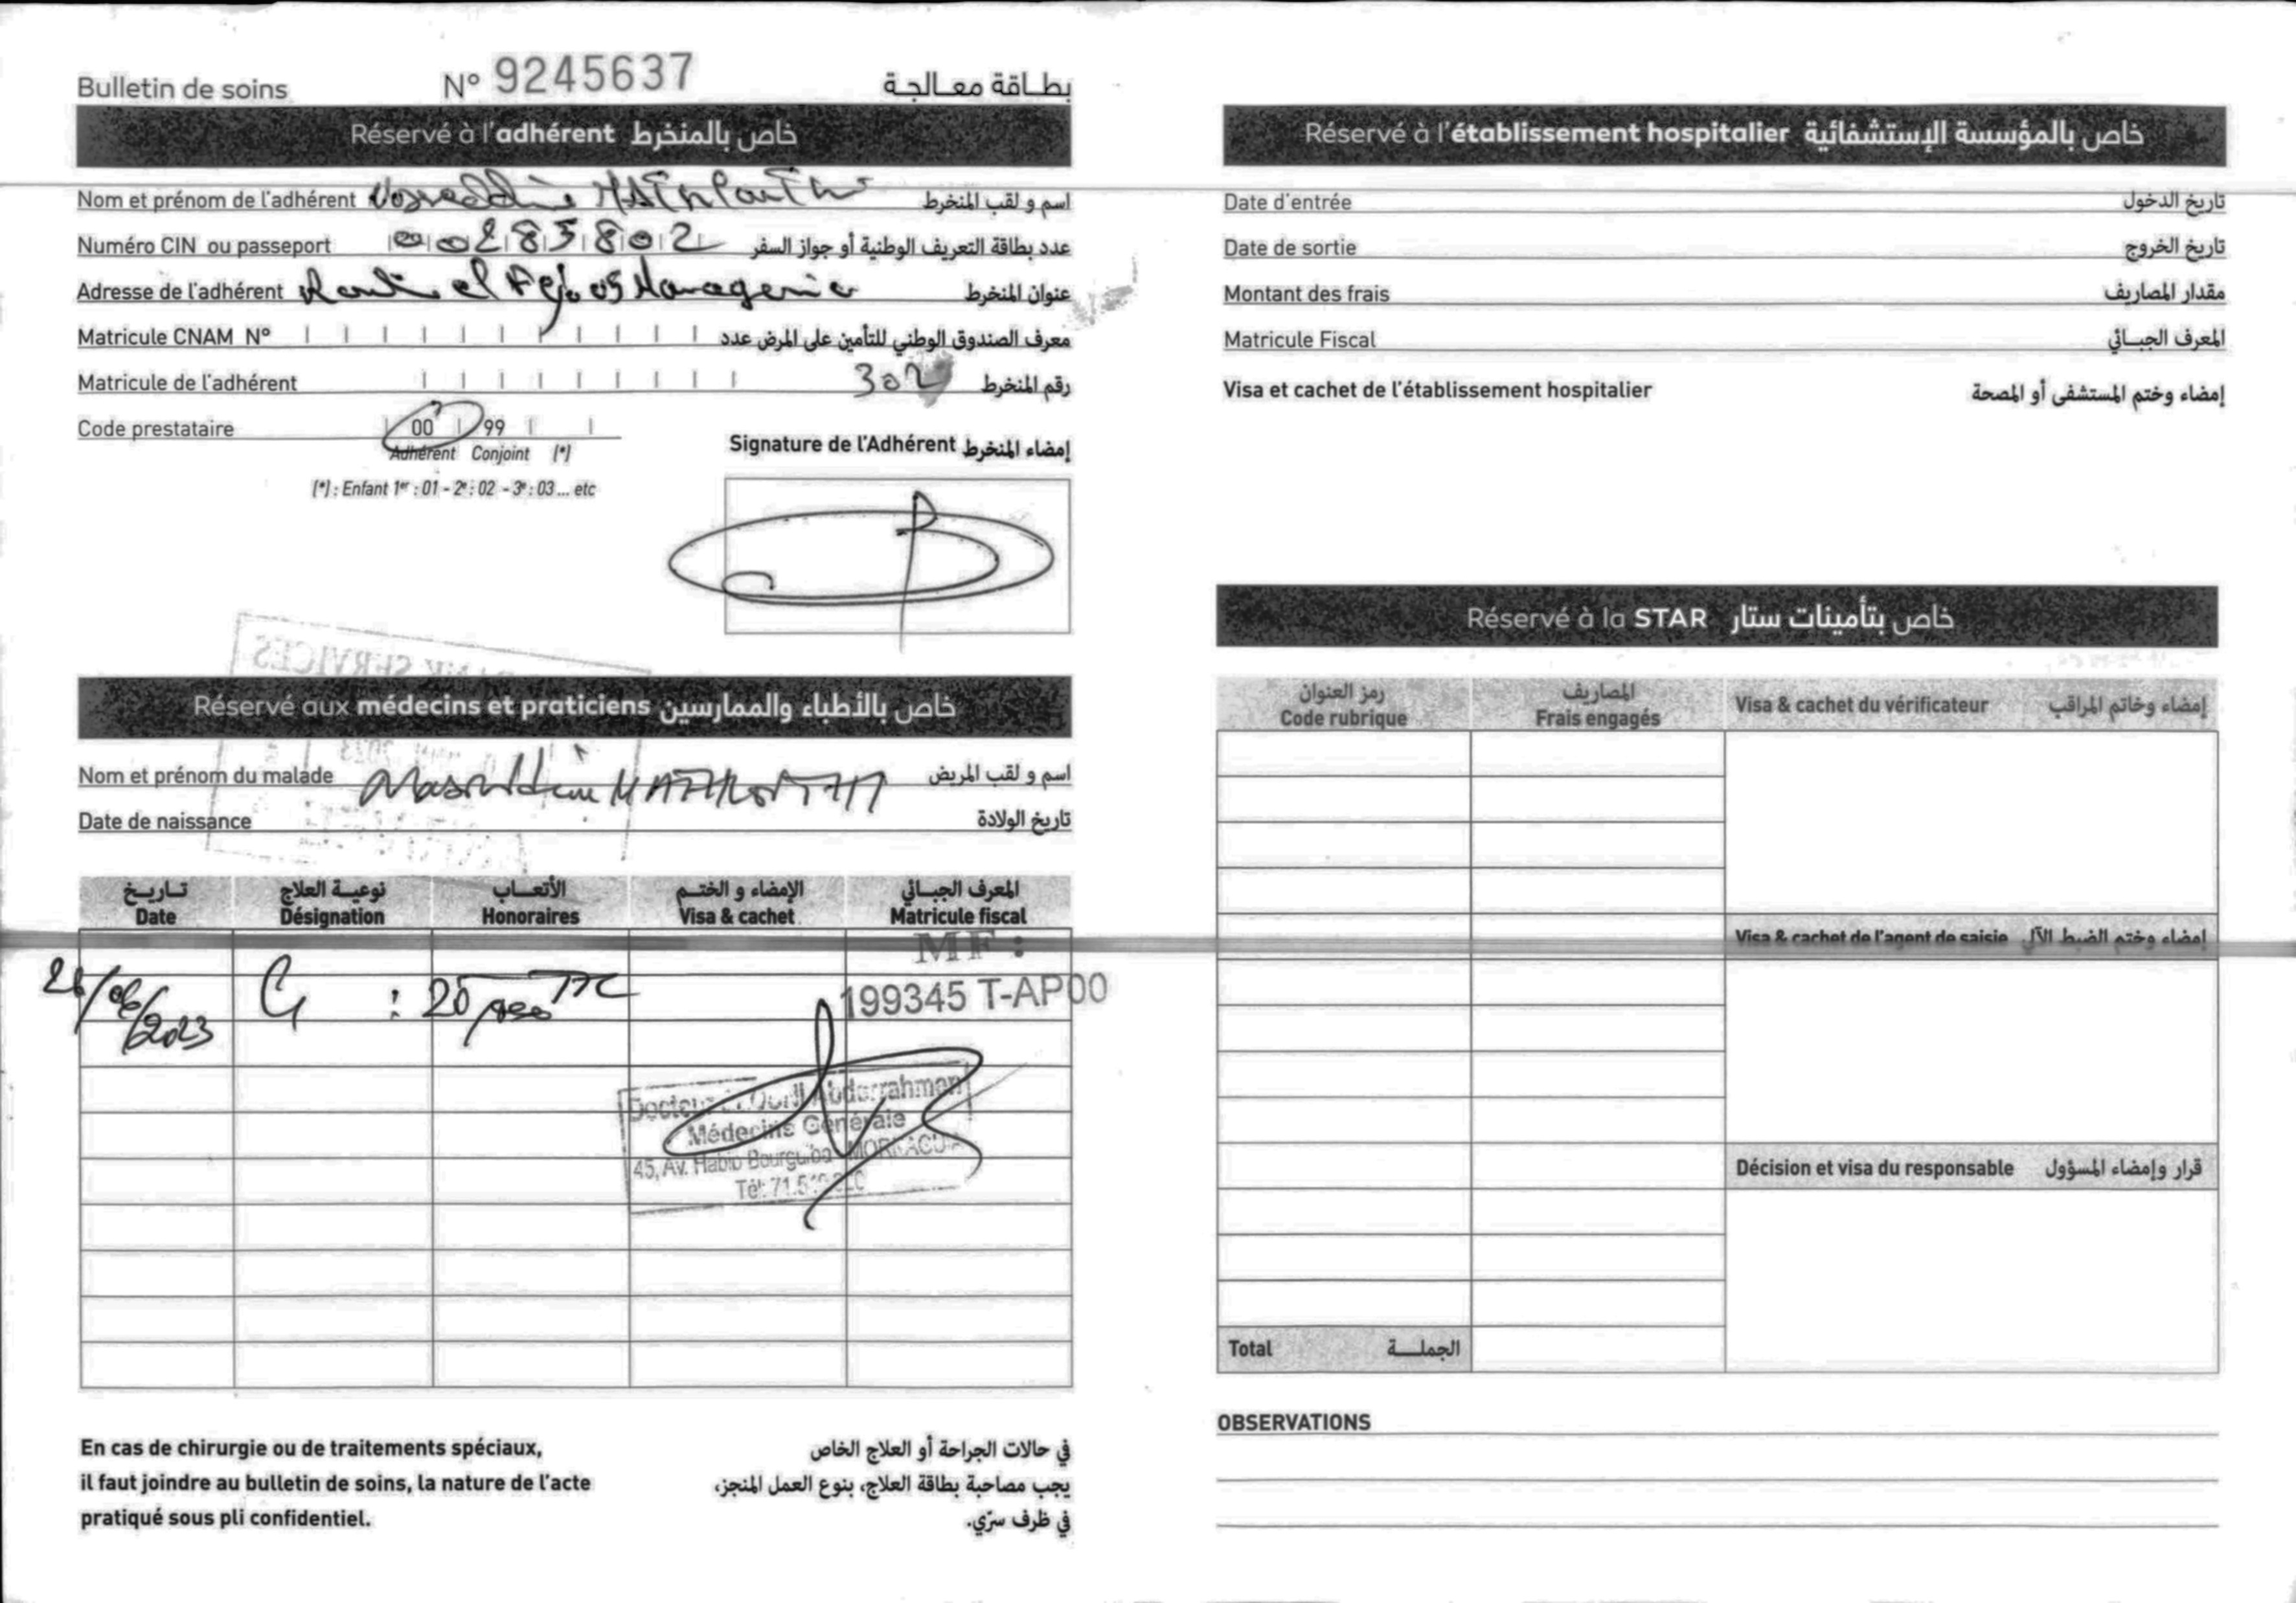 Bulletin de soins N° 9245637 بطاقة معالجة
Réservé à l'adhérent خاص بالمنخرط
Nom et prénom de l'adhérent اسم و لقب المنخرط
Numéro CIN ou passeport 00285802 عدد بطاقة التعريف الوطنية أو جواز السفر
Adresse de l'adhérent عنوان المنخرط
Matricule CNAM N° معرف الصندوق الوطني للتأمين على المرض عدد
Matricule de l'adhérent 302 رقم المنخرط
Code prestataire 00 99
Adhérent Conjoint (*)
(*) : Enfant 1er : 01 - 2e : 02 - 3e : 03 ... etc
Signature de l'Adhérent إمضاء المنخرط
SERVICES
Réservé aux médecins et praticiens خاص بالأطباء والممارسين
Nom et prénom du malade اسم و لقب المريض
Date de naissance تاريخ الولادة
تاريخ نوعية العلاج الأتعاب الإمضاء و الختم المعرف الجبائي
Date Désignation Honoraires Visa & cachet Matricule fiscal
MF :
26/06/2023 C : 199345 T-AP00
Abderrahman
Médecine Générale
45, Av. Habib Bourguiba
En cas de chirurgie ou de traitements spéciaux,
il faut joindre au bulletin de soins, la nature de l'acte
pratiqué sous pli confidentiel.
في حالات الجراحة أو العلاج الخاص
يجب مصاحبة بطاقة العلاج، بنوع العمل المنجز،
في ظرف سرّي.
Réservé à l'établissement hospitalier خاص بالمؤسسة الإستشفائية
Date d'entrée تاريخ الدخول
Date de sortie تاريخ الخروج
Montant des frais مقدار المصاريف
Matricule Fiscal المعرف الجبائي
Visa et cachet de l'établissement hospitalier إمضاء وختم المستشفى أو المصحة
Réservé à la STAR خاص بتأمينات ستار
رمز العنوان المصاريف
Code rubrique Frais engagés Visa & cachet du vérificateur إمضاء وخاتم المراقب
Visa & cachet de l'agent de saisie إمضاء وختم الضبط الآلي
Décision et visa du responsable قرار وإمضاء المسؤول
Total الجملة
OBSERVATIONS